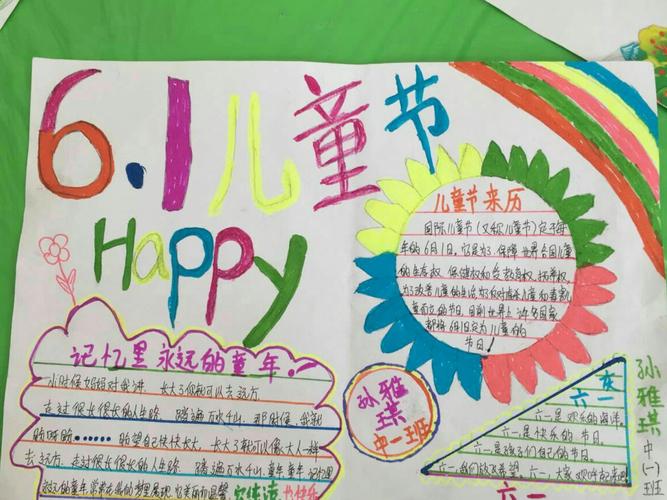 6.1儿童节
Happy
儿童节来历
国际儿童节(又称儿童节)定于每
年的6月1日。它是为了保障世界各国儿童
的生存权 保健权和受教育权 抚养权
为了改善儿童的生活,为了反对虐杀儿童和毒害
儿童而设的节日。目前世界上许多国家
都将6月1日定为儿童的
节日!
记忆里永远的童年!
小时候妈妈对我讲 长大了你就可以去远方
走过很长很长的人生路 踏遍万水千山,那时候,我就
盼呀盼……盼望自己快快长大,长大了就可以像大人一样
去远方,走过很长很长的人生路 踏遍万水千山,童年童年 记忆里
永远的童年
孙雅
琪
中一班
六一
六一是欢乐的海洋。
六一是快乐的节日。
六一是孩子们自己的节日。
六一,我们放飞希望。六一,大家欢呼起来吧!
六一
孙雅琪中(一)班